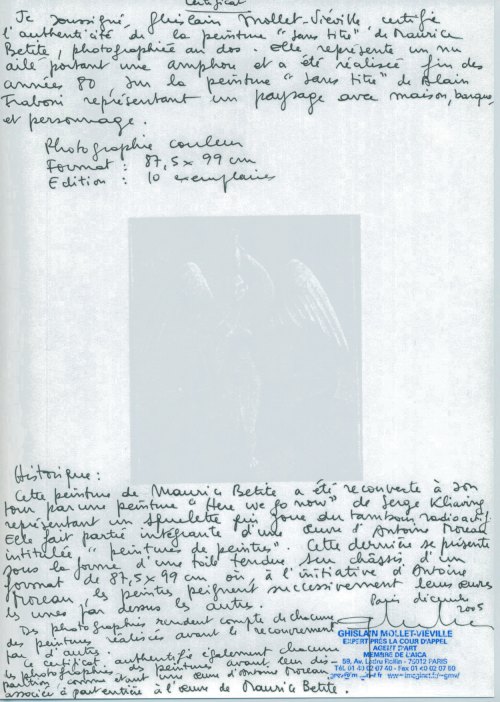 Certificat
Je soussigné, Ghislain Mollet-Viéville certifie
l'authenticité de la peinture "sans titre" de Maurice
Betite, photographiée au dos. Elle représente un nu
ailé portant une amphore et a été réalisée fin des
années 80 sur la peinture "sans titre" de Alain
Traboni représentant un paysage avec maison, barques
et personnage.
Photographie couleur
Format : 87,5 x 99 cm
Edition : 10 exemplaires
Historique :
Cette peinture de Maurice Betite a été recouverte à son
tour par une peinture "Here we go now" de Serge Kliaving
représentant un squelette qui joue du tambour radioactif
Elle fait partie intégrante d'une œuvre d'Antoine Moreau
intitulée "peintures de peintres". Cette dernière se présente
sous la forme d'une toile tendue sur châssis d'un
format de 87,5 x 99 cm où, à l'initiative d'Antoine
Moreau, les peintres peignent successivement leurs œuvres
les unes par dessus les autres.
Paris décembre
2005
Des photographies rendent compte de chacune
des peintures réalisées avant le recouvrement
par d'autres.
Ce certificat authentifie également chacune
des photographies des peintures avant leur
partition comme étant une œuvre d'Antoine Moreau
associée à part entière à l'œuvre de Maurice Betite.
GHISLAIN MOLLET-VIÉVILLE
EXPERT PRÈS LA COUR D'APPEL
AGENT D'ART
MEMBRE DE L'AICA
59, Av. Ledru Rollin - 75012 PARIS
Tél. 01 40 02 07 40 - Fax 01 40 02 07 60